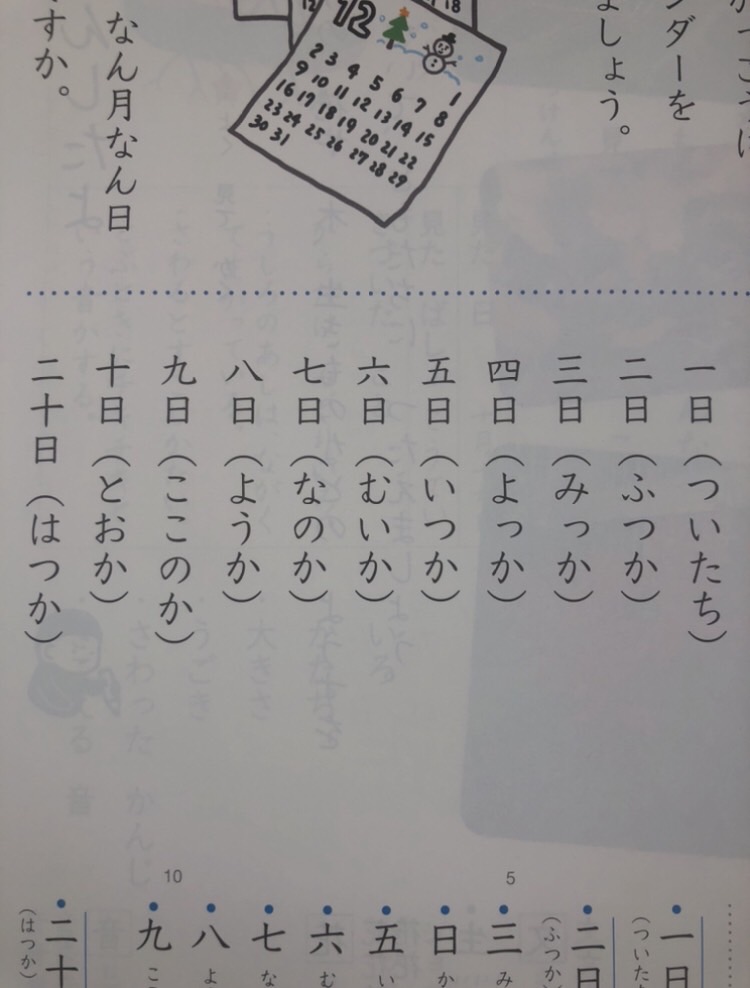 ンダーを
ましょう。
12
1
2 3 4 5 6 7 8
9 10 11 12 13 14 15
16 17 18 19 20 21 22
23 24 25 26 27 28 29
30 31
なん月なん日
すか。
一日(ついたち)
二日(ふつか)
三日(みっか)
四日(よっか)
五日(いつか)
六日(むいか)
七日(なのか)
八日(ようか)
九日(ここのか)
十日(とおか)
二十日(はつか)
5
10
一日(ついた
二日(ふつか)
三 み
日 か
五 い
六 む
七 な
八 よ
九 こ
二十(はつか)